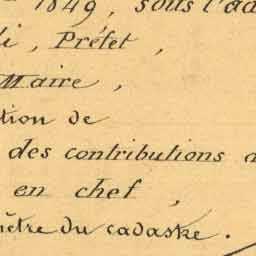 1849, sous l'ad
li, Préfet,
Maire,
tion de
des contributions d
en chef,
mètre du cadastre.